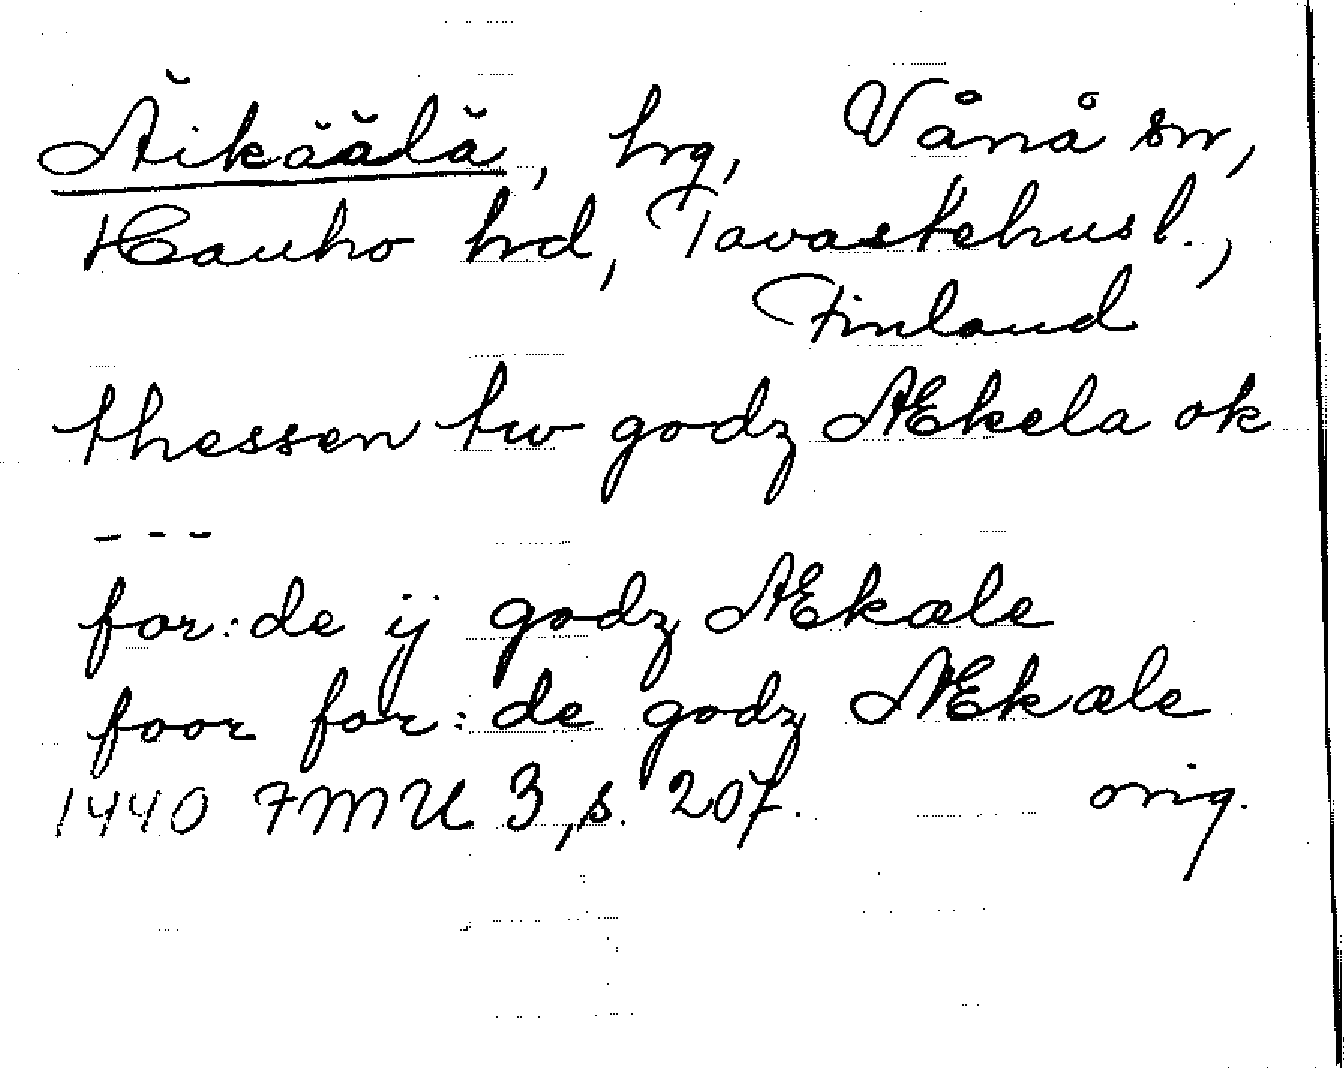 Äikäälä, hrg, Vånå sn,
Hauho hrd, Tavastehus l.,
Finland
thessen tw godz Ækela ok
---
for:de ij godz Ækæle
foor for:de godz Ækæle
1440 FMU 3, s. 207. orig.